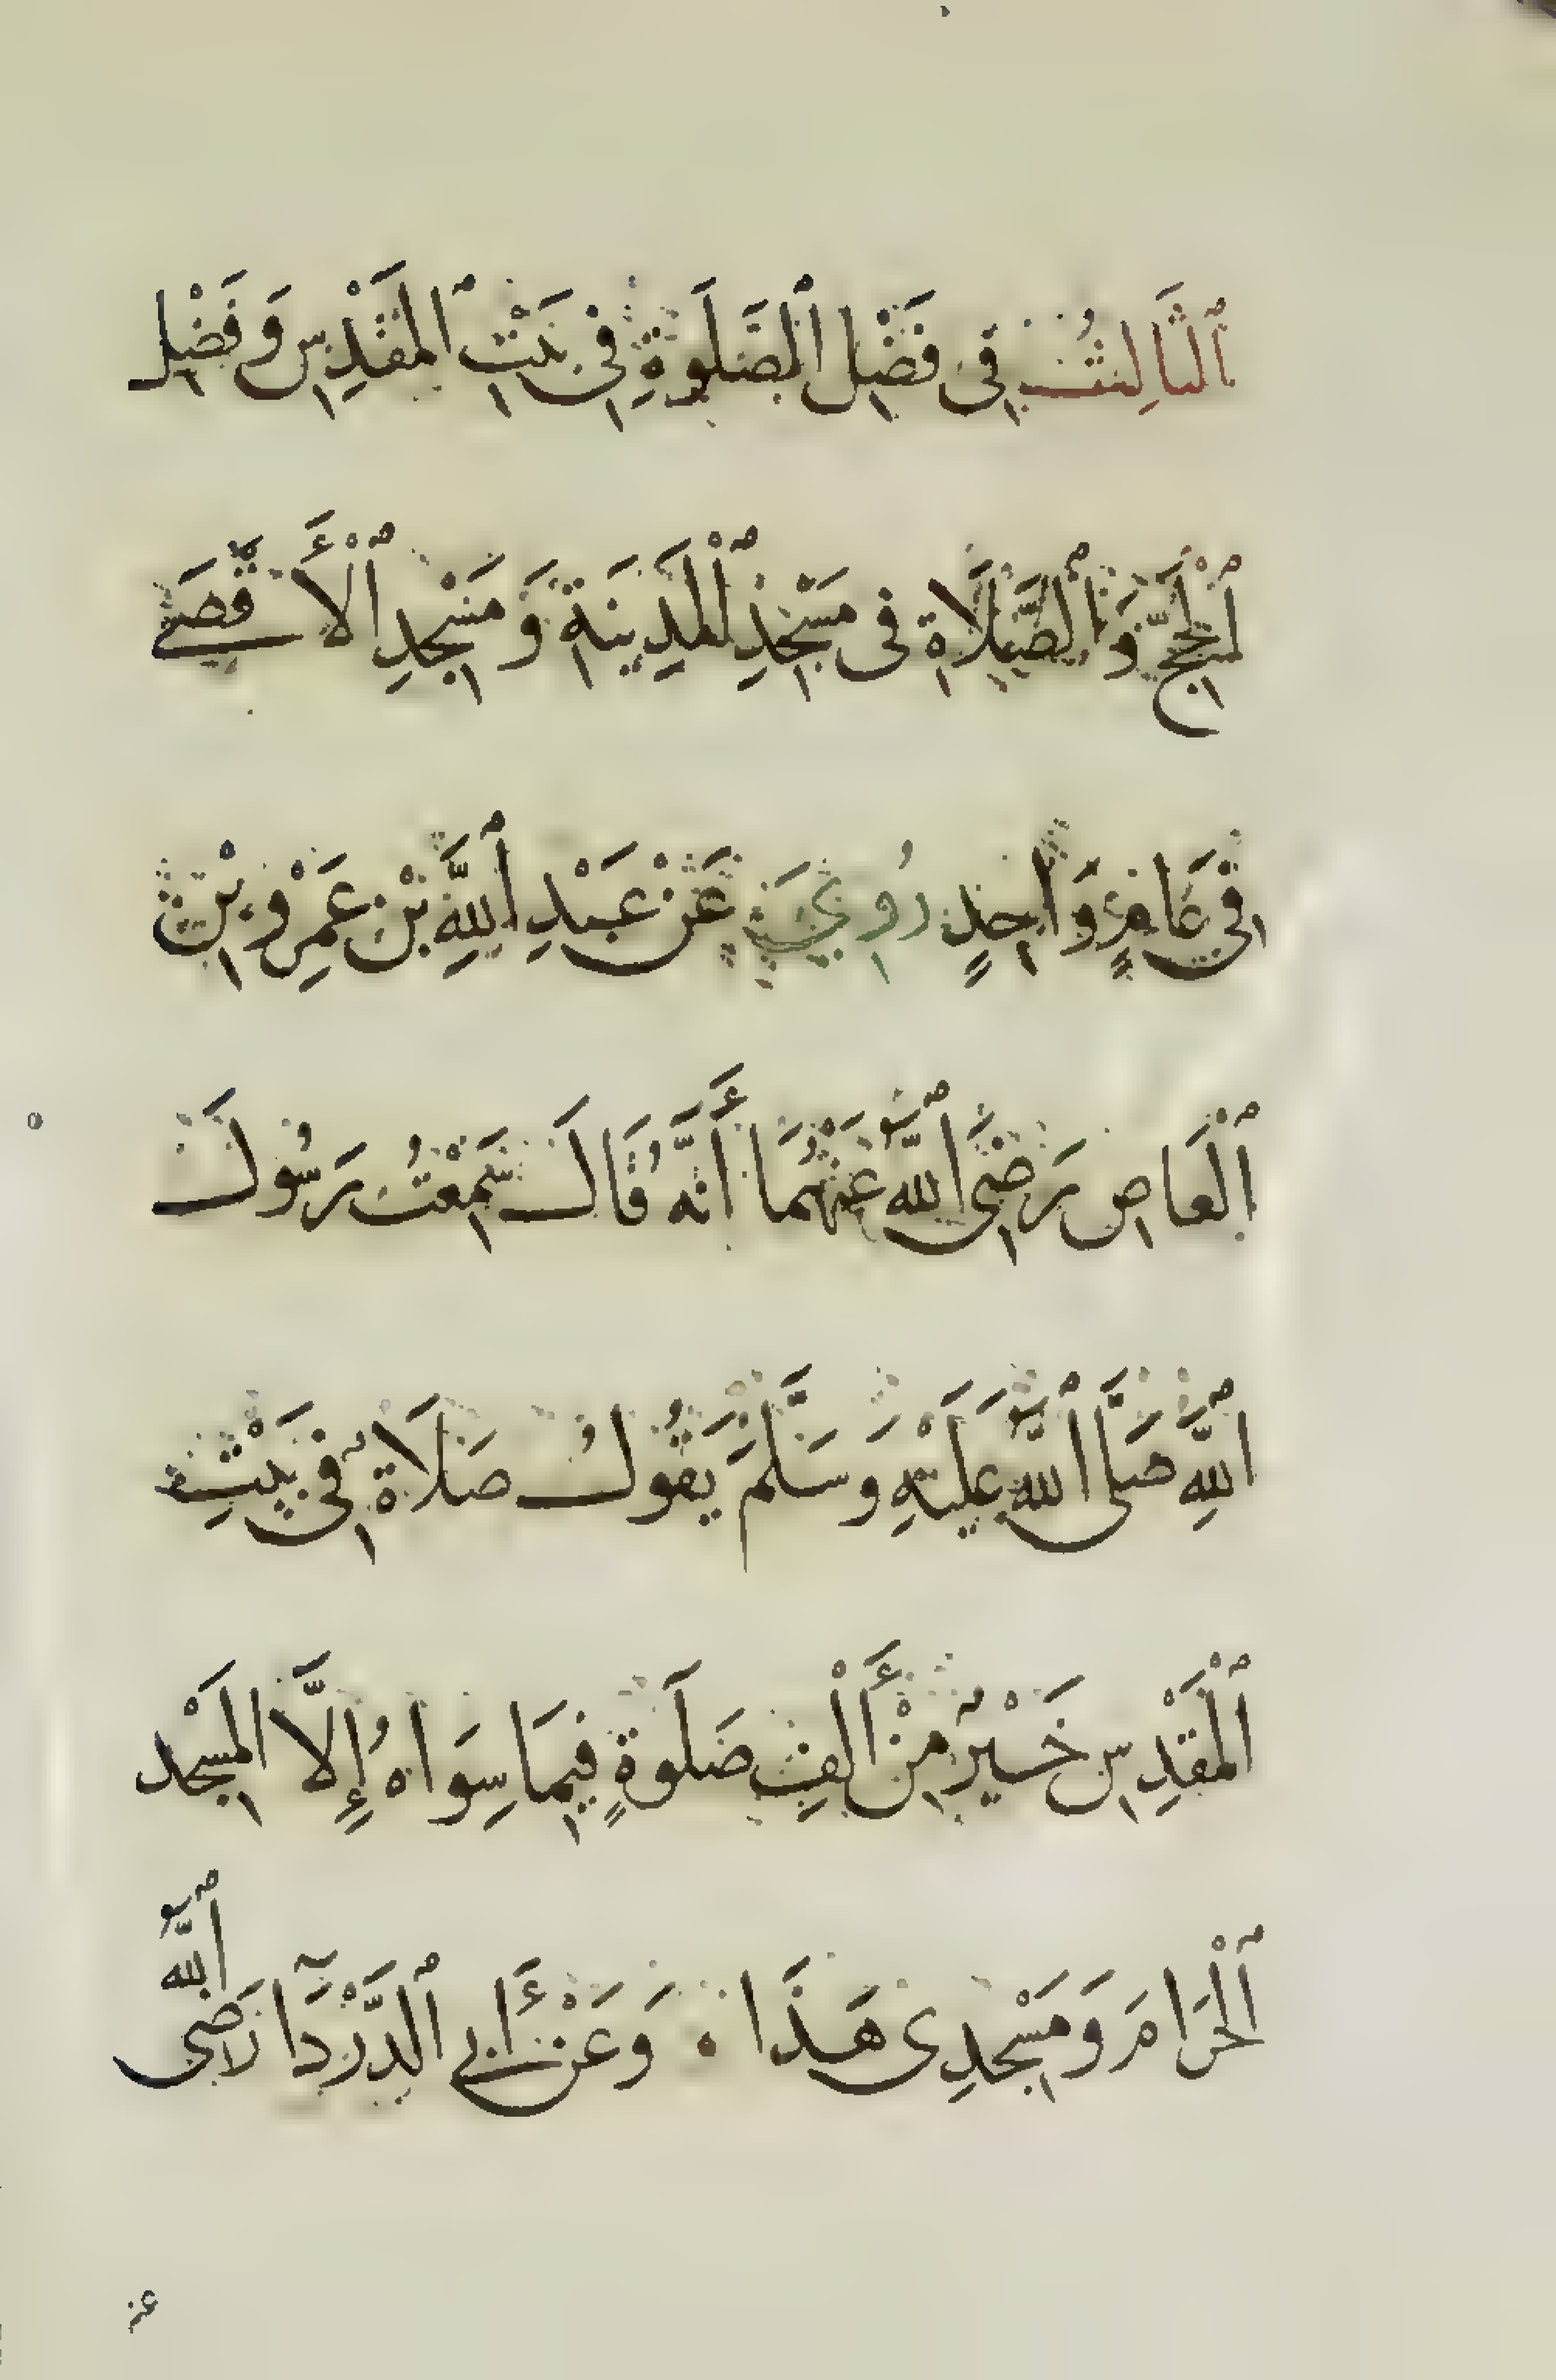 ٱلثَّالِثُ فِي فَضْلِ ٱلصَّلَوةِ فِي بَيْتِ ٱلْمَقْدِسِ وَفَضْلِ
ٱلْحَجِّ وَٱلصَّلَاةِ فِي مَسْجِدِ ٱلْمَدِينَةِ وَمَسْجِدِ ٱلْأَقْصَى
فِي عَامٍ وَاحِدٍ رُوِيَ عَنْ عَبْدِ ٱللَّهِ بْنِ عَمْرِو بْنِ
ٱلْعَاصِ رَضِيَ ٱللَّهُ عَنْهُمَا أَنَّهُ قَالَ سَمِعْتُ رَسُولَ
ٱللَّهِ صَلَّى ٱللَّهُ عَلَيْهِ وَسَلَّمَ يَقُولُ صَلَاةٌ فِي بَيْتِ
ٱلْمَقْدِسِ خَيْرٌ مِنْ أَلْفِ صَلَوةٍ فِيمَا سِوَاهُ إِلَّا الْمَسْجِد
ٱلْحَرَامَ وَمَسْجِدِي هَذَا . وَعَنْ أَبِي ٱلدَّرْدَآ رَضِيَ ٱللَّهُ
عنه